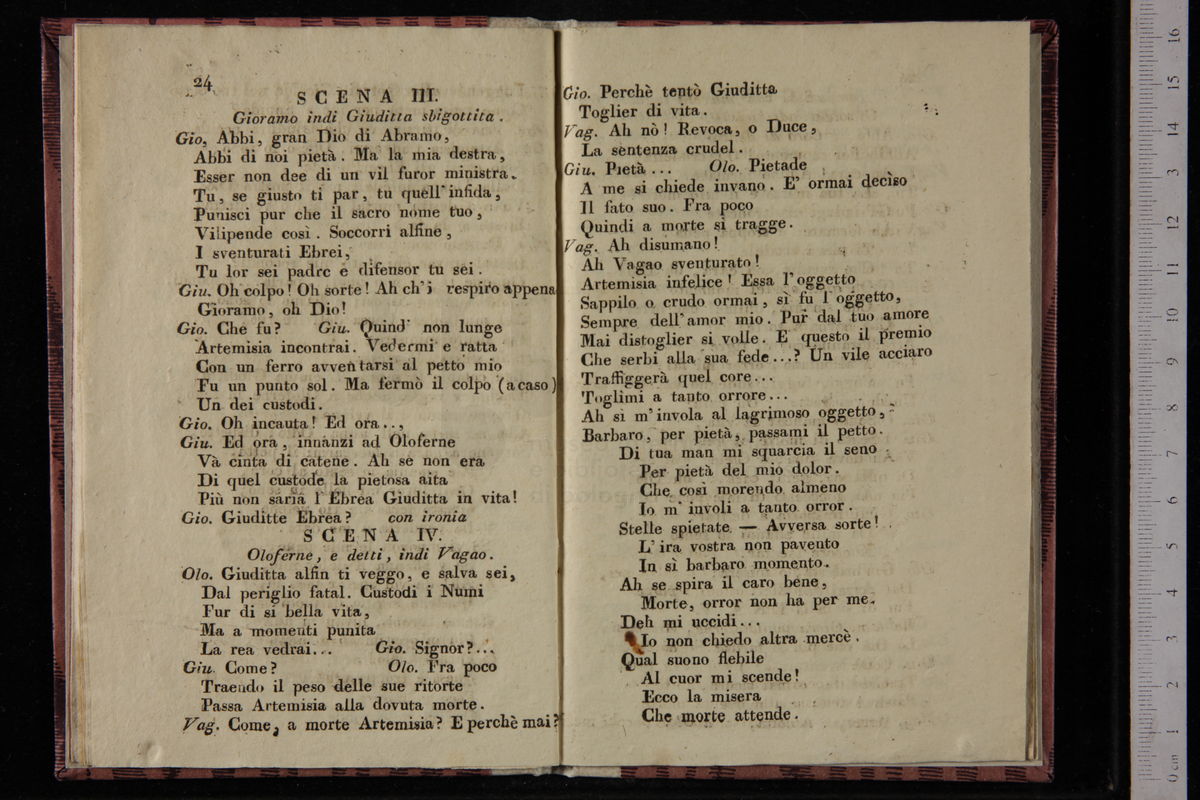 24
SCENA III.
Gioramo indi Giuditta sbigottita.
Gio. Abbi, gran Dio di Abramo,
Abbi di noi pietà. Ma la mia destra,
Esser non dee di un vil furor ministra.
Tu, se giusto ti par, tu quell'infida,
Punisci pur che il sacro nome tuo,
Vilipende così. Soccorri alfine,
I sventurati Ebrei,
Tu lor sei padre e difensor tu sei.
Giu. Oh colpo! Oh sorte! Ah ch'i respiro appena
Gioramo, oh Dio!
Gio. Che fu? Giu. Quind' non lunge
Artemisia incontrai. Vedermi e ratta
Con un ferro avventarsi al petto mio
Fu un punto sol. Ma fermò il colpo (a caso)
Un dei custodi.
Gio. Oh incauta! Ed ora..,
Giu. Ed ora, innanzi ad Oloferne
Và cinta di catene. Ah se non era
Di quel custode la pietosa aita
Più non saria l'Ebrea Giuditta in vita!
Gio. Giuditte Ebrea? con ironia
SCENA IV.
Oloferne, e detti, indi Vagao.
Olo. Giuditta alfin ti veggo, e salva sei,
Dal periglio fatal. Custodi i Numi
Fur di si bella vita,
Ma a momenti punita
La rea vedrai... Gio. Signor?...
Giu. Come? Olo. Fra poco
Traendo il peso delle sue ritorte
Passa Artemisia alla dovuta morte.
Vag. Come, a morte Artemisia? E perchè mai?
Gio. Perchè tentò Giuditta
Toglier di vita.
Vag. Ah nò! Revoca, o Duce,
La sentenza crudel.
Giu. Pietà... Olo. Pietade
A me si chiede invano. E' ormai deciso
Il fato suo. Fra poco
Quindi a morte si tragge.
Vag. Ah disumano!
Ah Vagao sventurato!
Artemisia infelice! Essa l'oggetto
Sappilo o crudo ormai, sì fu l'oggetto,
Sempre dell'amor mio. Pur dal tuo amore
Mai distoglier si volle. E questo il premio
Che serbi alla sua fede...? Un vile acciaro
Traffiggerà quel core...
Toglimi a tanto orrore...
Ah sì m'invola al lagrimoso oggetto,
Barbaro, per pietà, passami il petto.
Di tua man mi squarcia il seno
Per pietà del mio dolor.
Che così morendo almeno
Io m'involi a tanto orror.
Stelle spietate — Avversa sorte!
L'ira vostra non pavento
In sì barbaro momento.
Ah se spira il caro bene,
Morte, orror non ha per me.
Deh mi uccidi...
Io non chiedo altra mercè.
Qual suono flebile
Al cuor mi scende!
Ecco la misera
Che morte attende.
0 cm 1 2 3 4 5 6 7 8 9 10 11 12 13 14 15 16